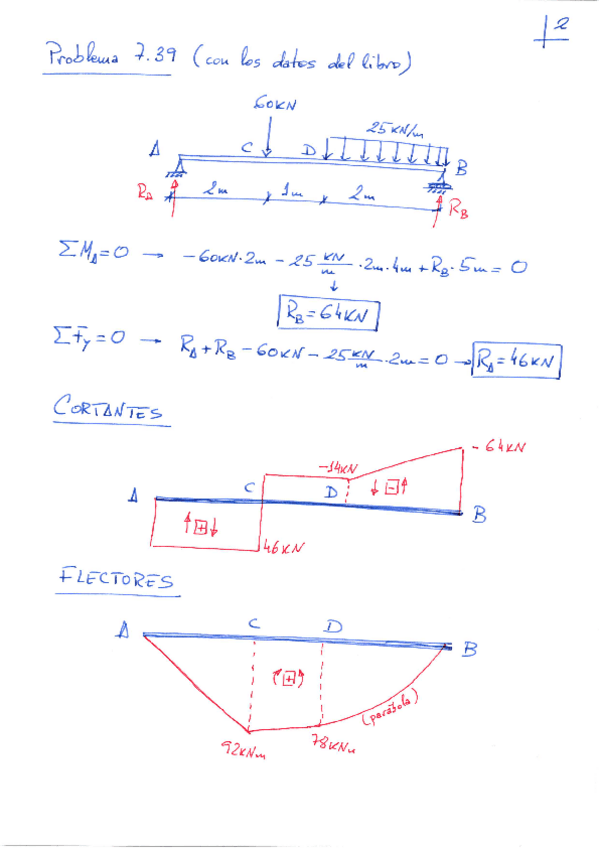 2
Problema 7.39 (con los datos del libro)
60KN
25 KN/m
A C D B
R_A 2m 1m 2m R_B
ΣM_A=0 → -60KN·2m - 25 KN/m ·2m·4m + R_B·5m = 0
↓
R_B = 64KN
ΣF_y=0 → R_A + R_B - 60KN - 25 KN/m ·2m = 0 → R_A = 46KN
CORTANTES
-64KN
-14KN
A C D B
↑ + ↓ ↓ - ↑
46KN
FLECTORES
A C D B
( + )
(parábola)
92KNm 78KNm